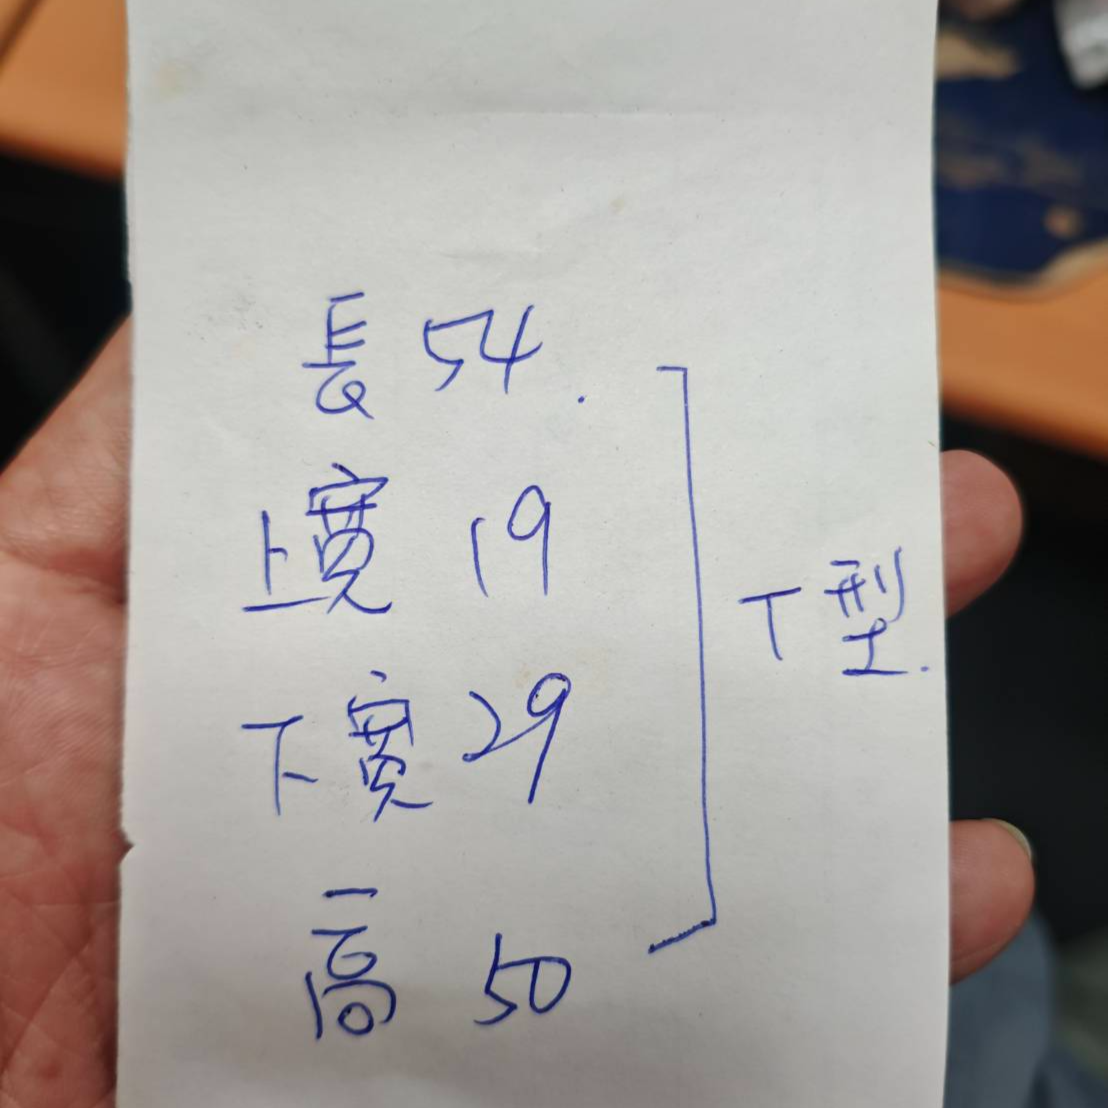 長 54.
上寬 19
下寬 29
高 50
T型.